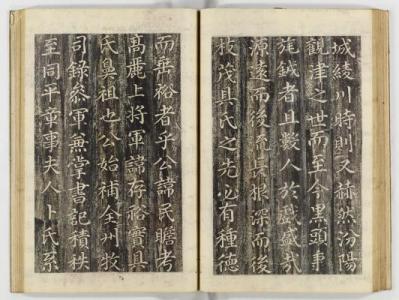 城綾川時則又赫然汾陽
觀津之世而至今黑頭事
旄鉞者且數人於戲盛哉
源遠而後流長根深而後
枝茂具氏之先必有種德
而垂裕者乎公諱民瞻考
高麗上將軍諱存裕實具
氏鼻祖也公始補全州牧
司錄叅軍兼掌書記積秩
至同平章事夫人卜氏系